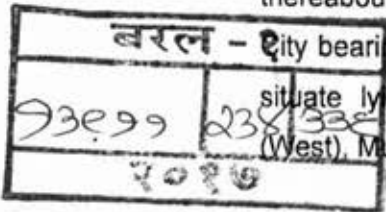 thereabou
बरल - १
city beari
१३९११ २३४ ३३८
situate ly
(West), M
२०१७